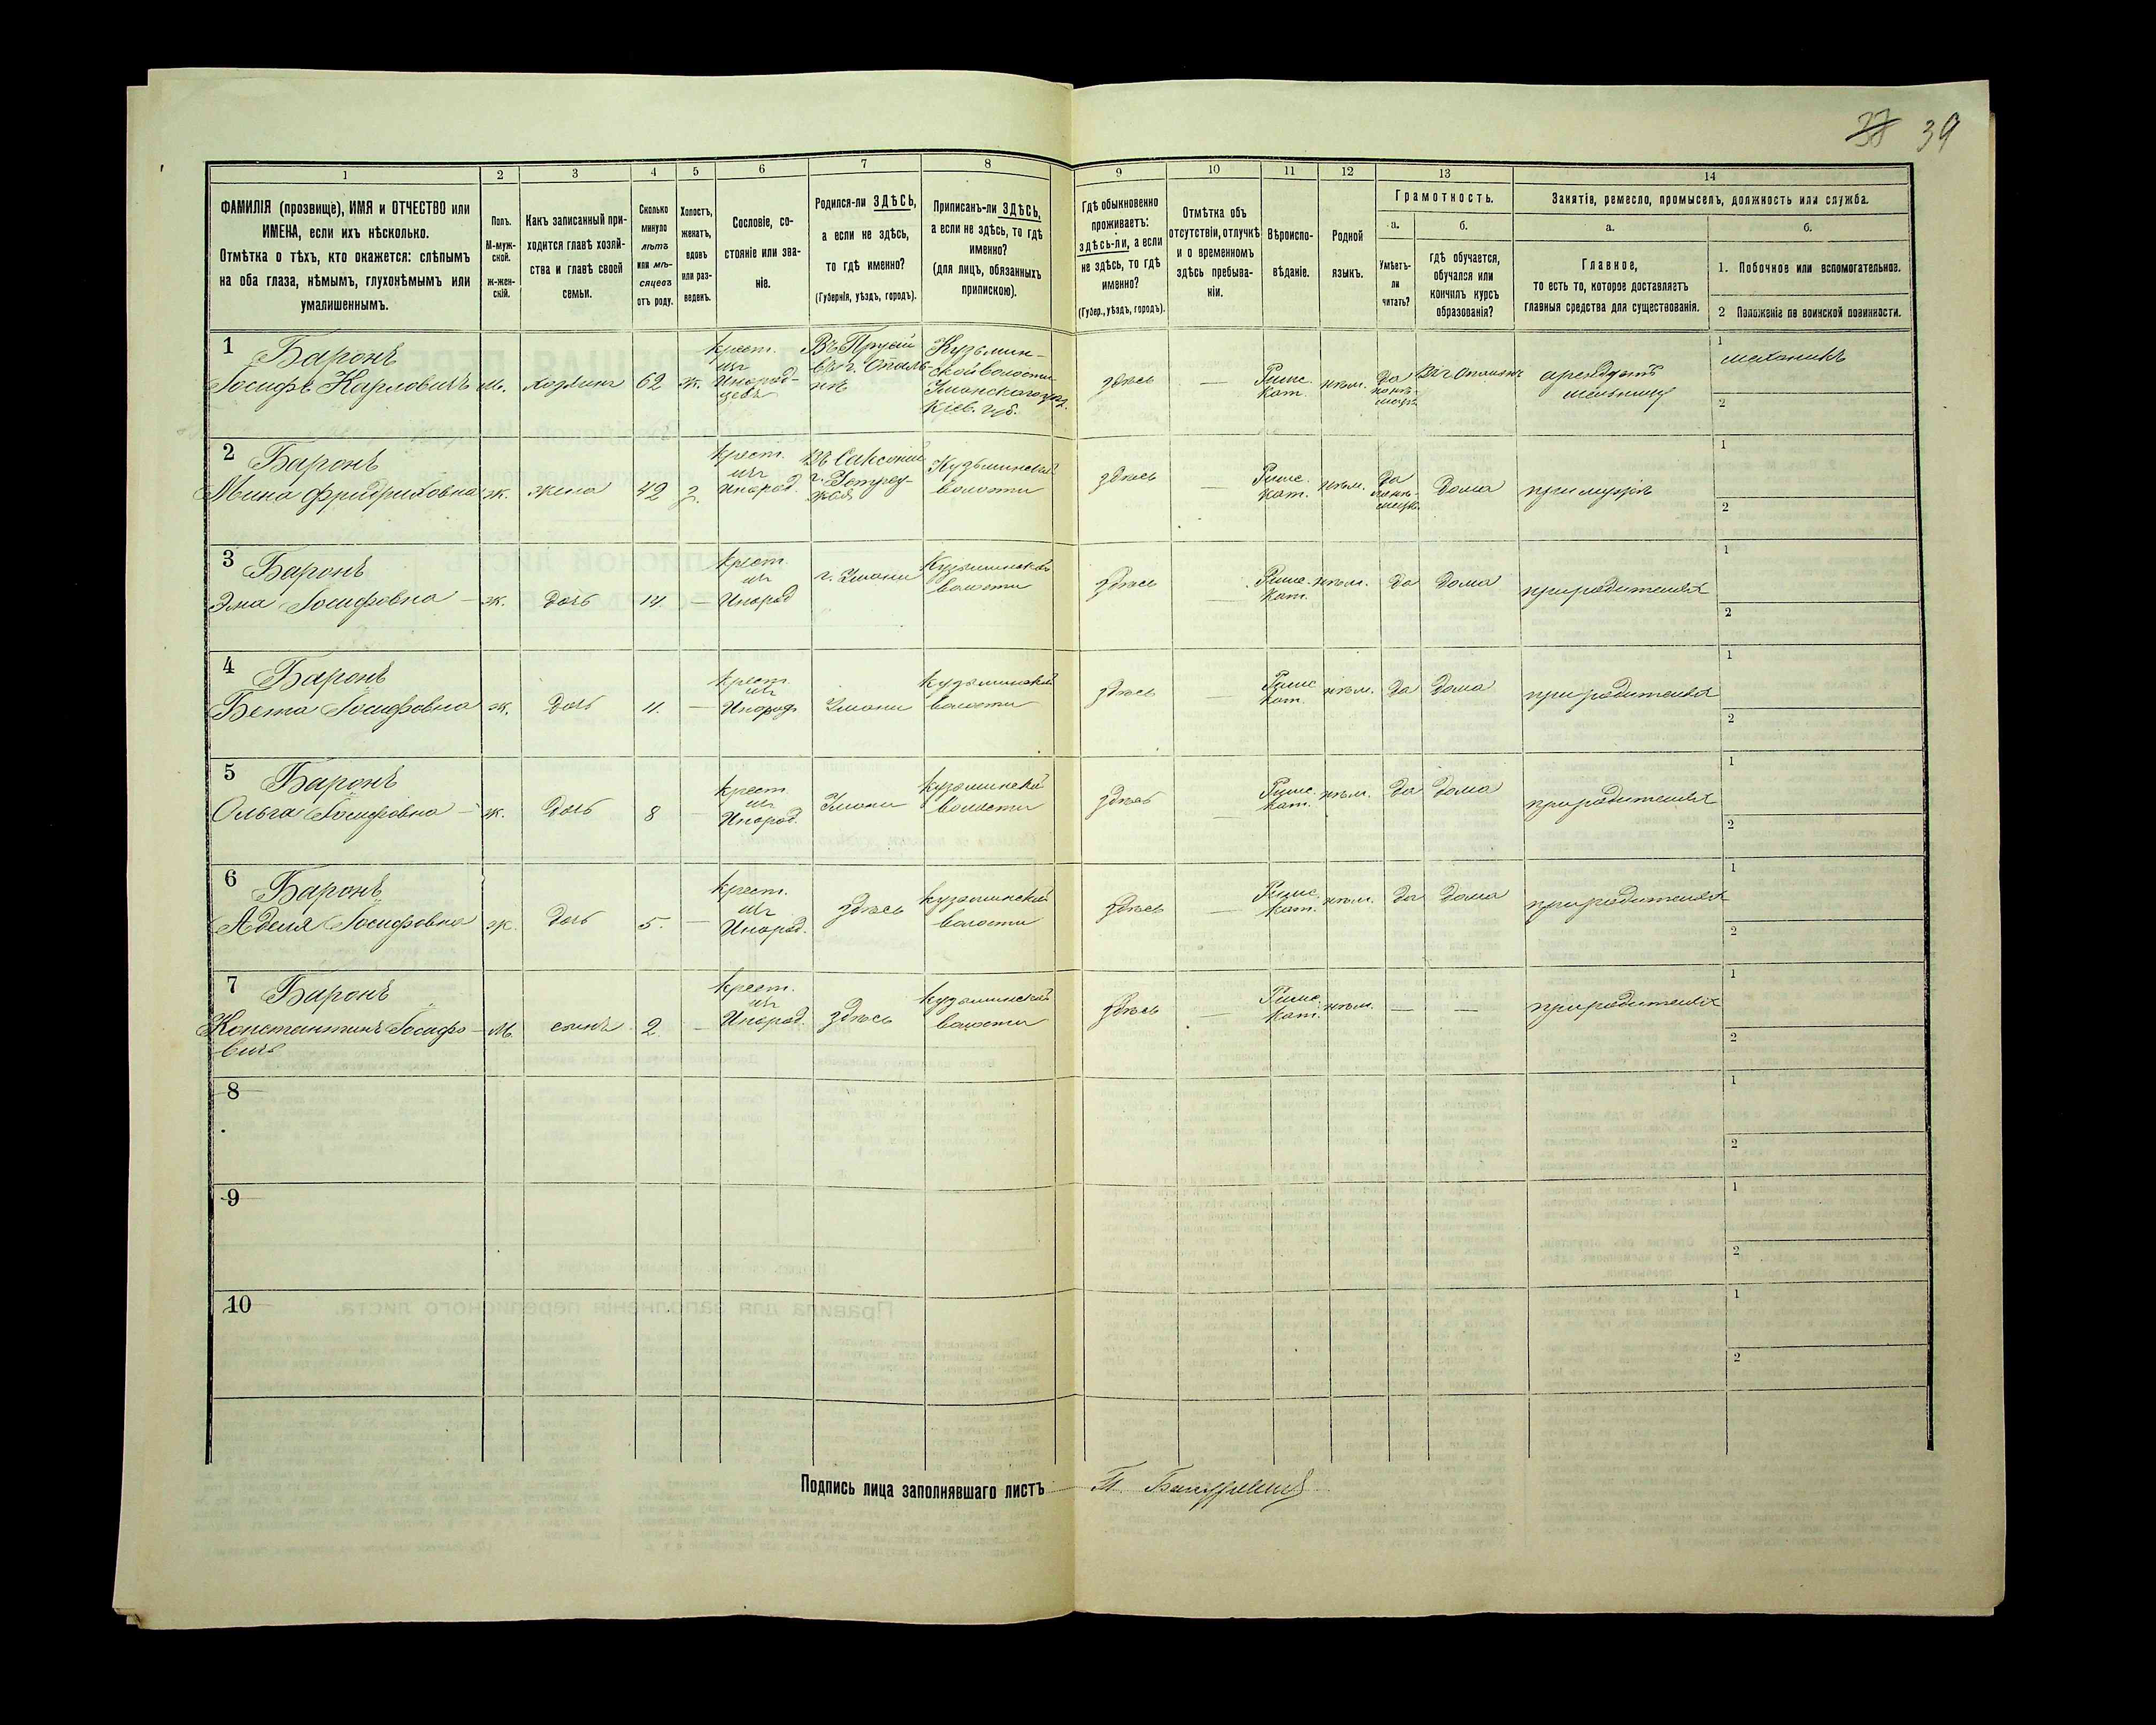 38 39
1 2 3 4 5 6 7 8 9 10 11 12 13 14
ФАМИЛІЯ (прозвище), ИМЯ и ОТЧЕСТВО или
ИМЕНА, если ихъ нѣсколько.
Отмѣтка о тѣхъ, кто окажется: слѣпымъ
на оба глаза, нѣмымъ, глухонѣмымъ или
умалишеннымъ.
Полъ.
М-муж-
ской.
ж-жен-
скій.
Какъ записанный при-
ходится главѣ хозяй-
ства и главѣ своей
семьи.
Сколько
минуло
лѣтъ
или мѣ-
сяцевъ
отъ роду.
Холостъ,
женатъ,
вдовъ
или раз-
веденъ.
Сословіе, со-
стояніе или зва-
ніе.
Родился-ли ЗДѢСЬ,
а если не здѣсь,
то гдѣ именно?
(Губернія, уѣздъ, городъ).
Приписанъ-ли ЗДѢСЬ,
а если не здѣсь, то гдѣ
именно?
(для лицъ, обязанныхъ
припискою).
Гдѣ обыкновенно
проживаетъ:
здѣсь-ли, а если
не здѣсь, то гдѣ
именно?
(Губер., уѣздъ, городъ).
Отмѣтка объ
отсутствіи, отлучкѣ
и о временномъ
здѣсь пребыва-
ніи.
Вѣроиспо-
вѣданіе.
Родной
языкъ.
Грамотность.
а.
Умѣетъ-
ли
читать?
б.
гдѣ обучается,
обучался или
кончилъ курсъ
образованія?
Занятія, ремесло, промыселъ, должность или служба.
а.
Главное,
то есть то, которое доставляетъ
главныя средства для существованія.
б.
1. Побочное или вспомогательное.
2 Положеніе по воинской повинности.
1 Баронъ
Іосифъ Карловичъ
м.
хозяинъ
62
ж.
крест.
изъ
Инород-
цевъ
Въ Прусіи
Кузьмин-
ской волости
Уманского уѣз.
Кіев. губ.
здѣсь
—
Римс.
Кат.
нѣм.
да
по нѣ-
мецк.
арендуетъ
мельницу
1 механикъ
2
2 Баронъ
Мина Фридриховна
ж.
жена
42
з.
крест.
изъ
Инород.
Въ Саксоніи
Кузьминской
волости
здѣсь
—
Римс.
Кат.
нѣм.
да
по нѣ-
мецк.
Дома
при мужѣ
1
2
3 Баронъ
Эма Іосифовна —
ж.
дочь
14.
—
крест.
изъ
Инород
г. Умани
Кузьминской
волости
здѣсь
—
Римс.
Кат.
нѣм.
да
Дома
при родителяхъ
1
2
4 Баронъ
Бета Іосифовна
ж.
дочь
11.
—
крест.
изъ
Инород.
Умани
Кузьминской
волости
здѣсь
—
Римс
Кат.
нѣм.
да
Дома
при родителяхъ
1
2
5 Баронъ
Ольга Іосифовна —
ж.
дочь
8
—
крест.
изъ
Инород.
Умани
Кузьминской
волости
здѣсь
—
Римс.
Кат.
нѣм.
да
Дома
при родителяхъ
1
2
6 Баронъ
Аделя Іосифовна
ж.
дочь
5.
—
крест.
изъ
Инород.
здѣсь
Кузьминской
волости
здѣсь
—
Римс.
Кат.
нѣм.
да
Дома
при родителяхъ
1
2
7 Баронъ
Константинъ Іосифо-
вичъ
м.
сынъ
2.
—
крест.
изъ
Инород.
здѣсь
Кузьминской
волости
здѣсь
—
Римс.
Кат.
нѣм.
—
—
при родителяхъ
1
2
8
1
2
9
1
2
10
1
2
Подпись лица заполнявшаго листъ